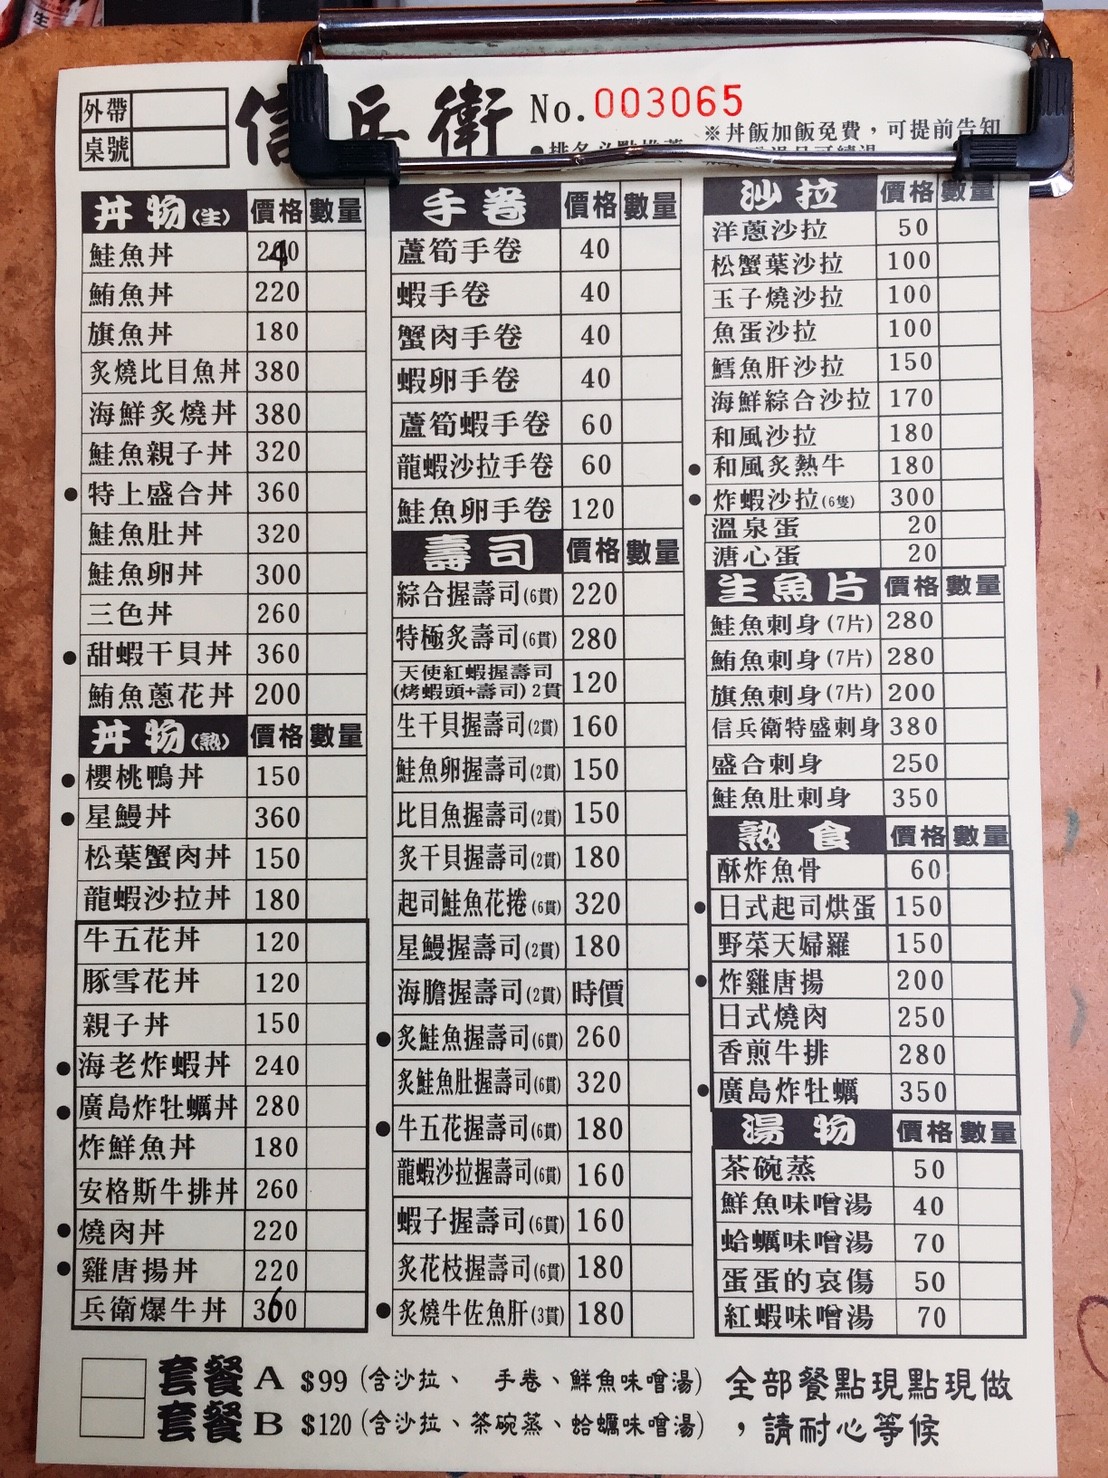 外帶
桌號
信兵衛
No.003065
※丼飯加飯免費，可提前告知
丼物(生) 價格 數量
鮭魚丼 240
鮪魚丼 220
旗魚丼 180
炙燒比目魚丼 380
海鮮炙燒丼 380
鮭魚親子丼 320
●特上盛合丼 360
鮭魚肚丼 320
鮭魚卵丼 300
三色丼 260
●甜蝦干貝丼 360
鮪魚蔥花丼 200
丼物(熟) 價格 數量
●櫻桃鴨丼 150
●星鰻丼 360
松葉蟹肉丼 150
龍蝦沙拉丼 180
牛五花丼 120
豚雪花丼 120
親子丼 150
●海老炸蝦丼 240
●廣島炸牡蠣丼 280
炸鮮魚丼 180
安格斯牛排丼 260
●燒肉丼 220
●雞唐揚丼 220
兵衛爆牛丼 360
手卷 價格 數量
蘆筍手卷 40
蝦手卷 40
蟹肉手卷 40
蝦卵手卷 40
蘆筍蝦手卷 60
龍蝦沙拉手卷 60
鮭魚卵手卷 120
壽司 價格 數量
綜合握壽司(6貫) 220
特極炙壽司(6貫) 280
天使紅蝦握壽司
(烤蝦頭+壽司) 2貫 120
生干貝握壽司(2貫) 160
鮭魚卵握壽司(2貫) 150
比目魚握壽司(2貫) 150
炙干貝握壽司(2貫) 180
起司鮭魚花捲(6貫) 320
星鰻握壽司(2貫) 180
海膽握壽司(2貫) 時價
●炙鮭魚握壽司(6貫) 260
炙鮭魚肚握壽司(6貫) 320
●牛五花握壽司(6貫) 180
龍蝦沙拉握壽司(6貫) 160
蝦子握壽司(6貫) 160
炙花枝握壽司(6貫) 180
●炙燒牛佐魚肝(3貫) 180
沙拉 價格 數量
洋蔥沙拉 50
松蟹葉沙拉 100
玉子燒沙拉 100
魚蛋沙拉 100
鱈魚肝沙拉 150
海鮮綜合沙拉 170
和風沙拉 180
●和風炙熱牛 180
●炸蝦沙拉(6隻) 300
溫泉蛋 20
溏心蛋 20
生魚片 價格 數量
鮭魚刺身(7片) 280
鮪魚刺身(7片) 280
旗魚刺身(7片) 200
信兵衛特盛刺身 380
盛合刺身 250
鮭魚肚刺身 350
熟食 價格 數量
酥炸魚骨 60
●日式起司烘蛋 150
野菜天婦羅 150
●炸雞唐揚 200
日式燒肉 250
香煎牛排 280
●廣島炸牡蠣 350
湯物 價格 數量
茶碗蒸 50
鮮魚味噌湯 40
蛤蠣味噌湯 70
蛋蛋的哀傷 50
紅蝦味噌湯 70
套餐A $99 (含沙拉、 手卷、鮮魚味噌湯)
套餐B $120 (含沙拉、茶碗蒸、蛤蠣味噌湯)
全部餐點現點現做
，請耐心等候